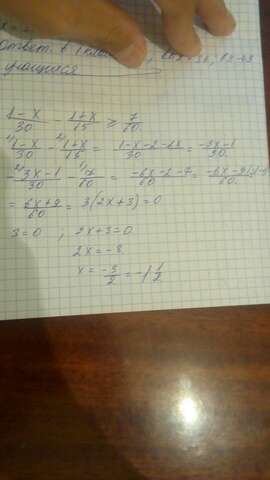 ответ. в
учащиеся
1-x/30 - 1+x/15 ≥ 7/60
1-x/30 - 1+x/15 = 1-x-2-2x/30 = -3x-1/30
-3x-1/30 - 7/60 = -6x-2-7/60 = -6x-9/60
= 6x+9/60 = 3(2x+3)=0
3=0 , 2x+3=0
2x=-3
x=-3/2=-1 1/2